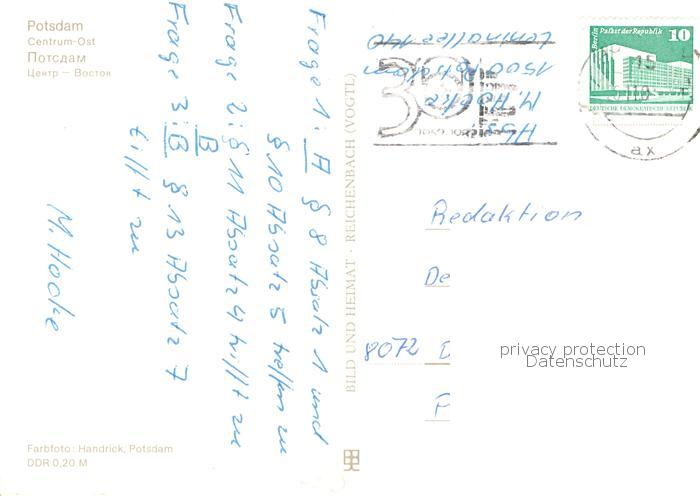 Potsdam
Centrum-Ost
Потсдам
Центр – Восток
Frage 1: A § 8 Absatz 1 und
§ 10 Absatz 5 treffen zu
Frage 2: § 11 Absatz 4 trifft zu
B
Frage 3: B § 13 Absatz 7
trifft zu
M. Hooke
Farbfoto: Handrick, Potsdam
DDR 0,20 M
BILD UND HEIMAT · REICHENBACH (VOGTL)
Abs.
M. Hooke
1500 Potsdam
Leninallee 140
Berlin Palast der Republik
10
DEUTSCHE DEMOKRATISCHE REPUBLIK
15
ax
Redaktion
De
8072 D
F
privacy protection
Datenschutz